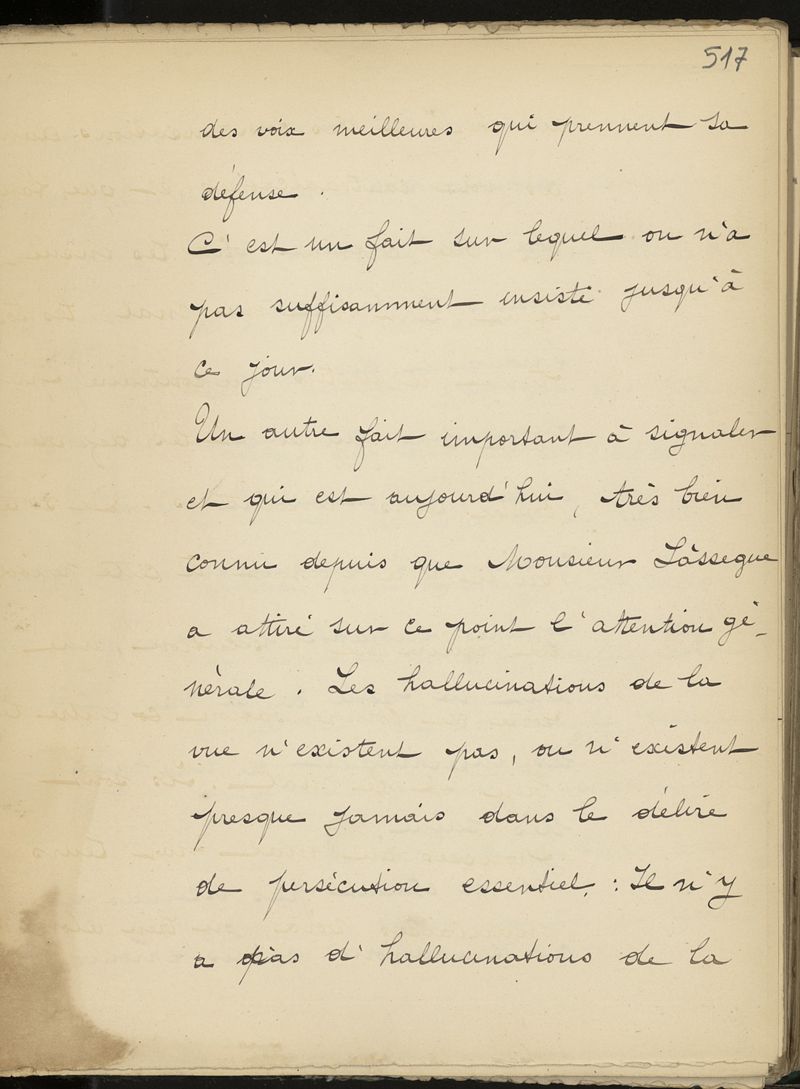 517
des voix meilleures qui prennent sa
défense .
C'est un fait sur lequel on n'a
pas suffisamment insisté jusqu'à
ce jour.
Un autre fait important à signaler
et qui est aujourd'hui, très bien
connu depuis que Monsieur Lâssegue
a attiré sur ce point l'attention gé-
nérale . Les hallucinations de la
vue n'existent pas, ou n'existent
presque jamais dans le délire
de persécution essentiel : Il n'y
a pas d'hallucinations de la